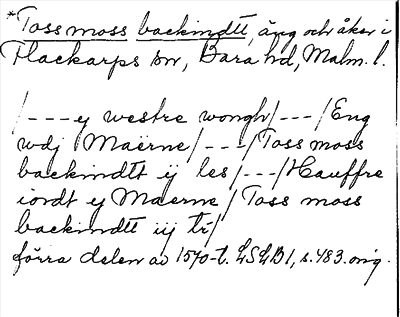 *Tossmoss backindtt, äng och åker i
Flackarps sn, Bara hd, Malm. l.
/---ey westre wongh/---/Eng
wdj Maerne/---/Toss moss
backindtt ij les/---/Hauffre
iordt ey Maerne/Toss moss
backindtt iij tr/
förra delen av 1570-t. LSLB1, s. 483. orig.